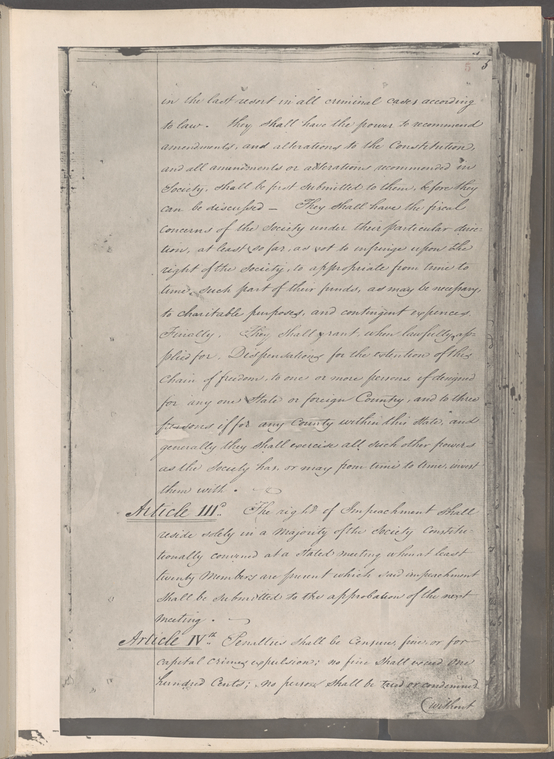 5
5
in the last resort in all criminal cases according
to law. They shall have the power to recommend
amendments, and alterations to the Constitution,
and all amendments or alterations recommended in
Society, shall be first submitted to them, before they
can be discussed — They shall have the fiscal
concerns of the Society under their particular direc
tion, at least so far, as not to infringe upon the
right of the Society, to appropriate from time to
time, such part of their funds, as may be necessary,
to charitable purposes, and contingent expences
Finally. They shall grant, when lawfully, ap
plied for. Dispensations for the extention of this
chain of freedom, to one or more persons if designed
for any one State or foreign Country, and to three
persons if for any County within this State, and
generally they shall exercise all such other powers
as the Society has, or may from time to time, invest
them with.
Article III.d The right of Impeachment shall
reside solely in a Majority of the Society Constitu-
tionally convened at a Stated meeting when at least
twenty Members are present which said impeachment
shall be submitted to the approbation of the next
meeting.
Article IV.th Penalties shall be Censure, fine, or for
capital crimes expulsion; no fine shall exceed one
hundred Cents; no person shall be tried or condemned
(without